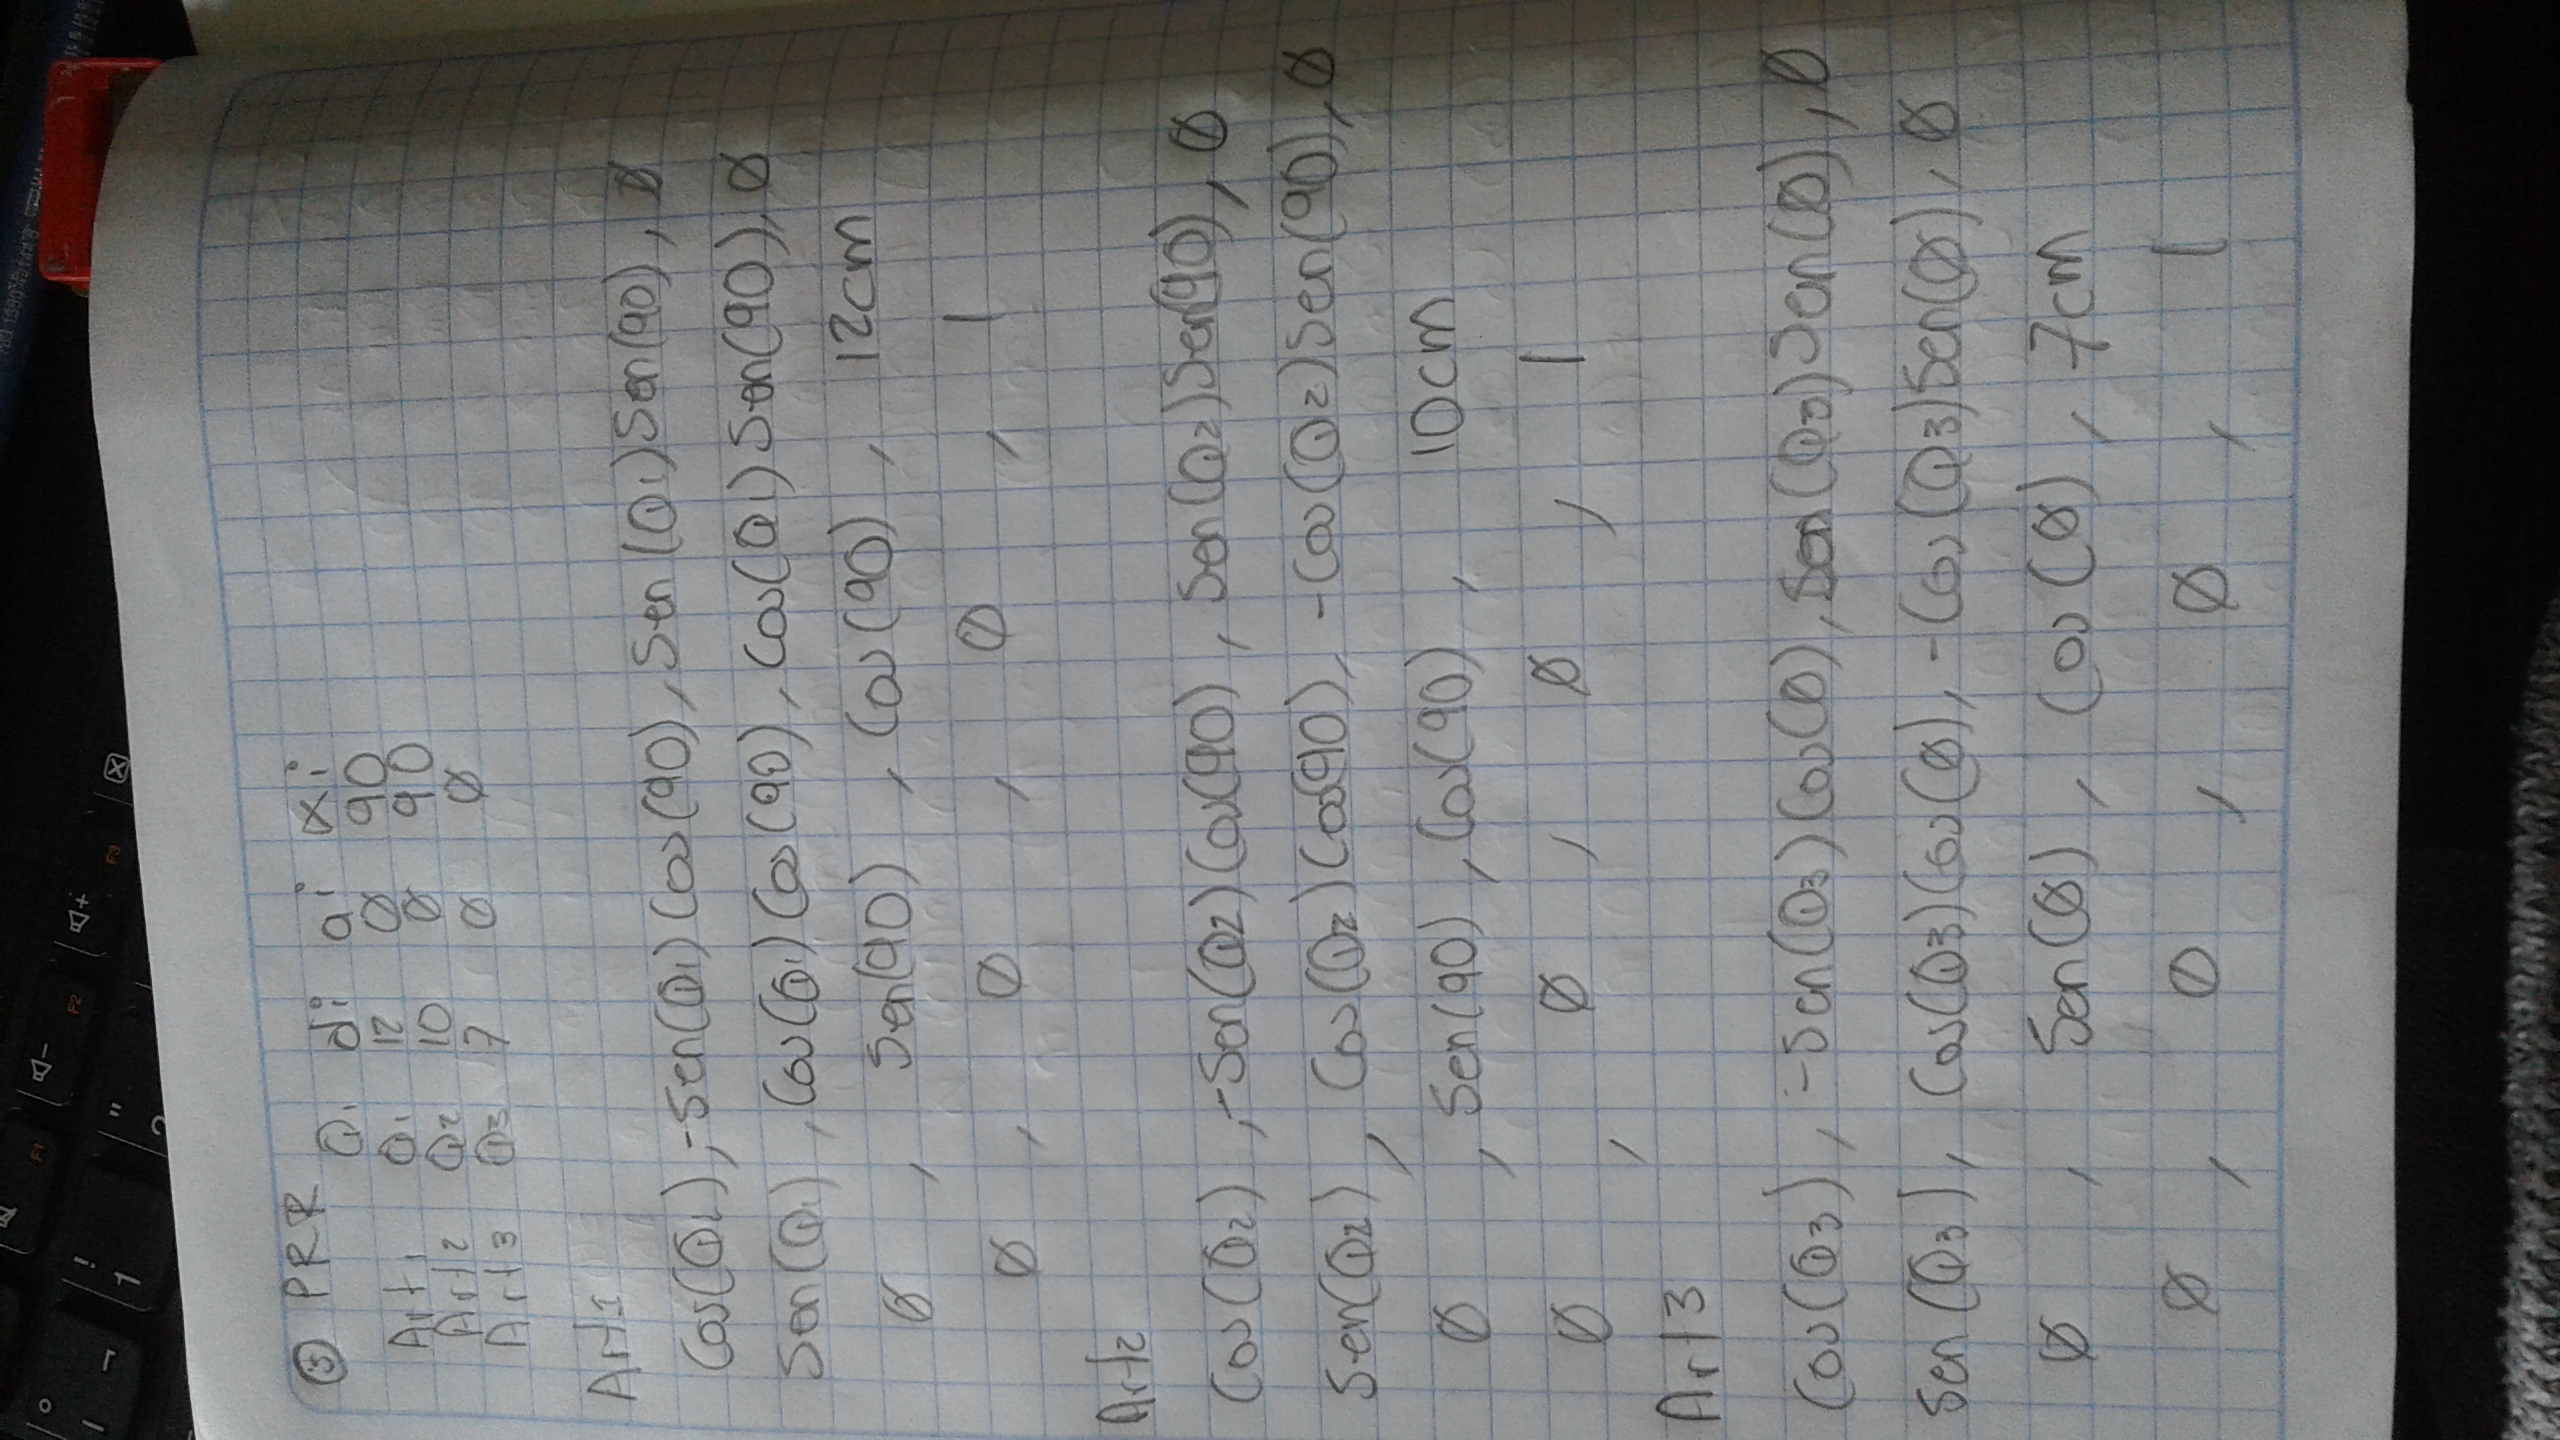 ③ PRR
θi di ai αi
Art1 θ1 12 0 90
Art2 θ2 10 0 90
Art3 θ3 7 0 0
Art1
Cos(θ1), -Sen(θ1)Cos(90), Sen(θ1)Sen(90), 0
Sen(θ1), Cos(θ1)Cos(90), Cos(θ1)Sen(90), 0
0, Sen(90), Cos(90), 12cm
0, 0, 0, 1
Art2
Cos(θ2), -Sen(θ2)Cos(90), Sen(θ2)Sen(90), 0
Sen(θ2), Cos(θ2)Cos(90), -Cos(θ2)Sen(90), 0
0, Sen(90), Cos(90), 10cm
0, 0, 0, 1
Art3
Cos(θ3), -Sen(θ3)Cos(0), Sen(θ3)Sen(0), 0
Sen(θ3), Cos(θ3)Cos(0), -Cos(θ3)Sen(0), 0
0, Sen(0), Cos(0), 7cm
0, 0, 0, 1
F1
F2
F3